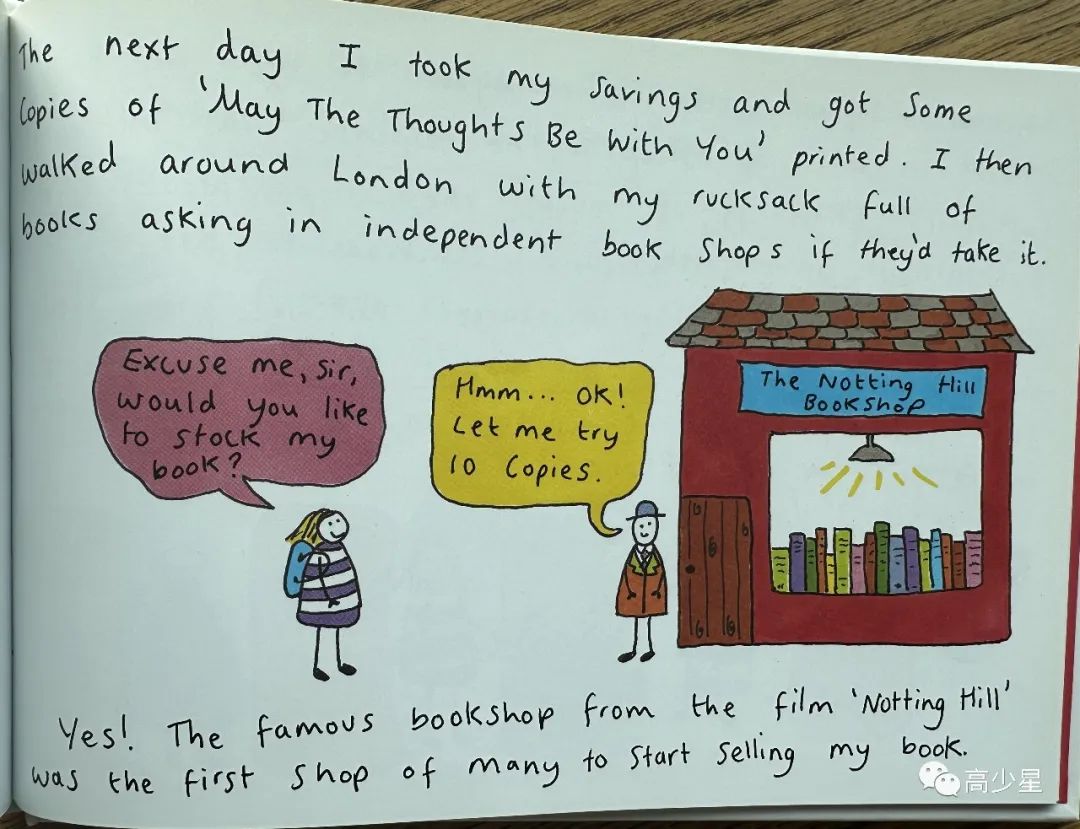 The next day I took my savings and got some
copies of 'May The Thoughts Be With You' printed. I then
walked around London with my rucksack full of
books asking in independent book shops if they'd take it.
Excuse me, sir,
would you like
to stock my
book?
Hmm... OK!
Let me try
10 copies.
The Notting Hill
Bookshop
Yes! The famous bookshop from the film 'Notting Hill'
was the first shop of many to start selling my book.
高少星